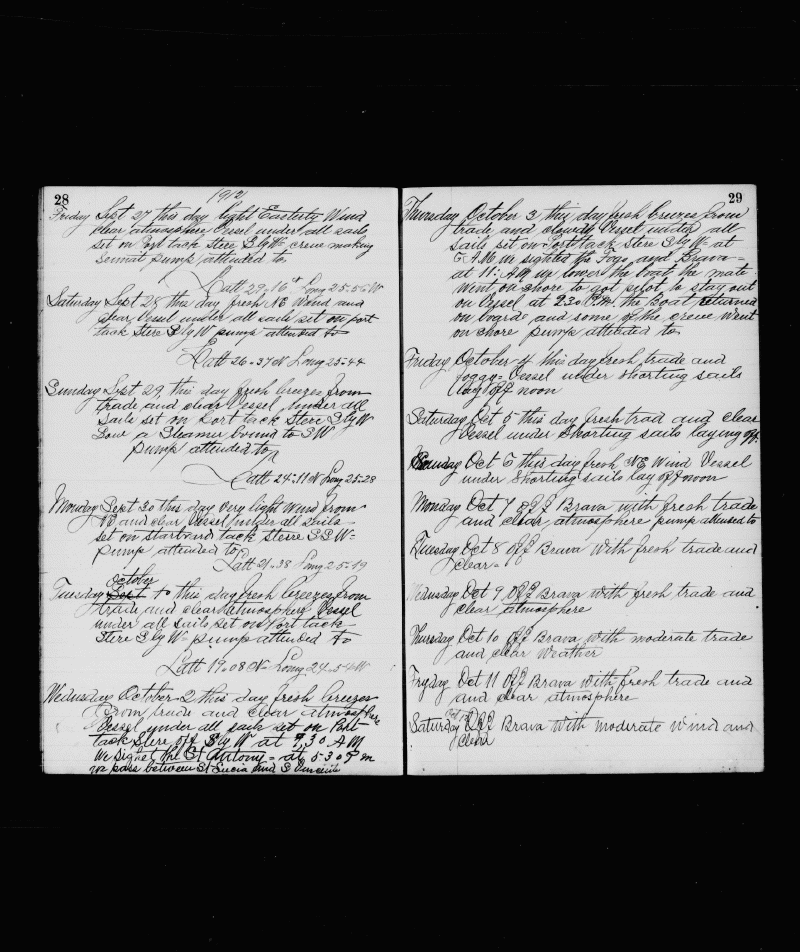 28
1912
Friday Sept 27 this day light Easterly Wind
clear atmosphere Vessel under all sails
set on Port tack Stere S by W- crew making
sennit pump attended to
Latt 29-16 Long 25-55 W
Saturday Sept 28 this day fresh NE Wind and
clear Vessel under all sails set on port
tack Stere S by W pump attended to
Latt 26-37 N Long 25-44
Sunday Sept 29, this day fresh breezes from
trade and clear Vessel under all
sails set on Port tack Stere S by W
Saw a Steamer bound to SW
pump attended to
Latt 24-11 N Long 25-28
Monday Sept 30 this day very light wind from
and clear Vessel under all sails
set on starbord tack Stere S S W-
pump attended to
Latt 21-38 Long 25-19
October
Tuesday Sept 1 this day fresh breezes from
trade and clear atmosphere Vessel
under all sails set on Port tack
Stere S by W- pump attended to
Latt 19-08 N- Long 24-54 W
Wednesday October 2 this day fresh breezes
From trade and clear atmosphere
Vessel under all sails set on Port
tack Stere S by W at 7,30 AM
We signet the St Antony- at 5-30 P m
we pass between St Lucia and S Vincente
29
Thursday October 3 this day fresh breezes from
trade and clowdy Vessel under all
sails set on Port tack Stere S by W- at
6 AM we sighted the Fogo and Brava-
at 11: AM we lower the boat the mate
went on shore to got pilot to stay out
on Vessel at 2.30 P.M. the boat returned
on boarde and some of the crew went
on shore pump attended to
Friday October 4 this day fresh trade and
foggy- Vessel under shorting sails
lay off noon
Saturday Oct 5 this day fresh trad and clear
Vessel under Shorting sails laying off
Sunday Oct 6 this day fresh NE Wind Vessel
under Shorting sails lay off noon
Monday Oct 7 off Brava with fresh trade
and clear atmosphere pump attended to
Tuesday Oct 8 off Brava With fresh trade and
clear-
Wednusday Oct 9 Off Brava with fresh trade and
clear atmosphere
Thursday Oct 10 Off Brava with moderate trade
and clear Weather
Fryday Oct 11 Off Brava with fresh trade and
and clear atmosphere
Saturday Oct Off Brava with moderate Wind and
Clear